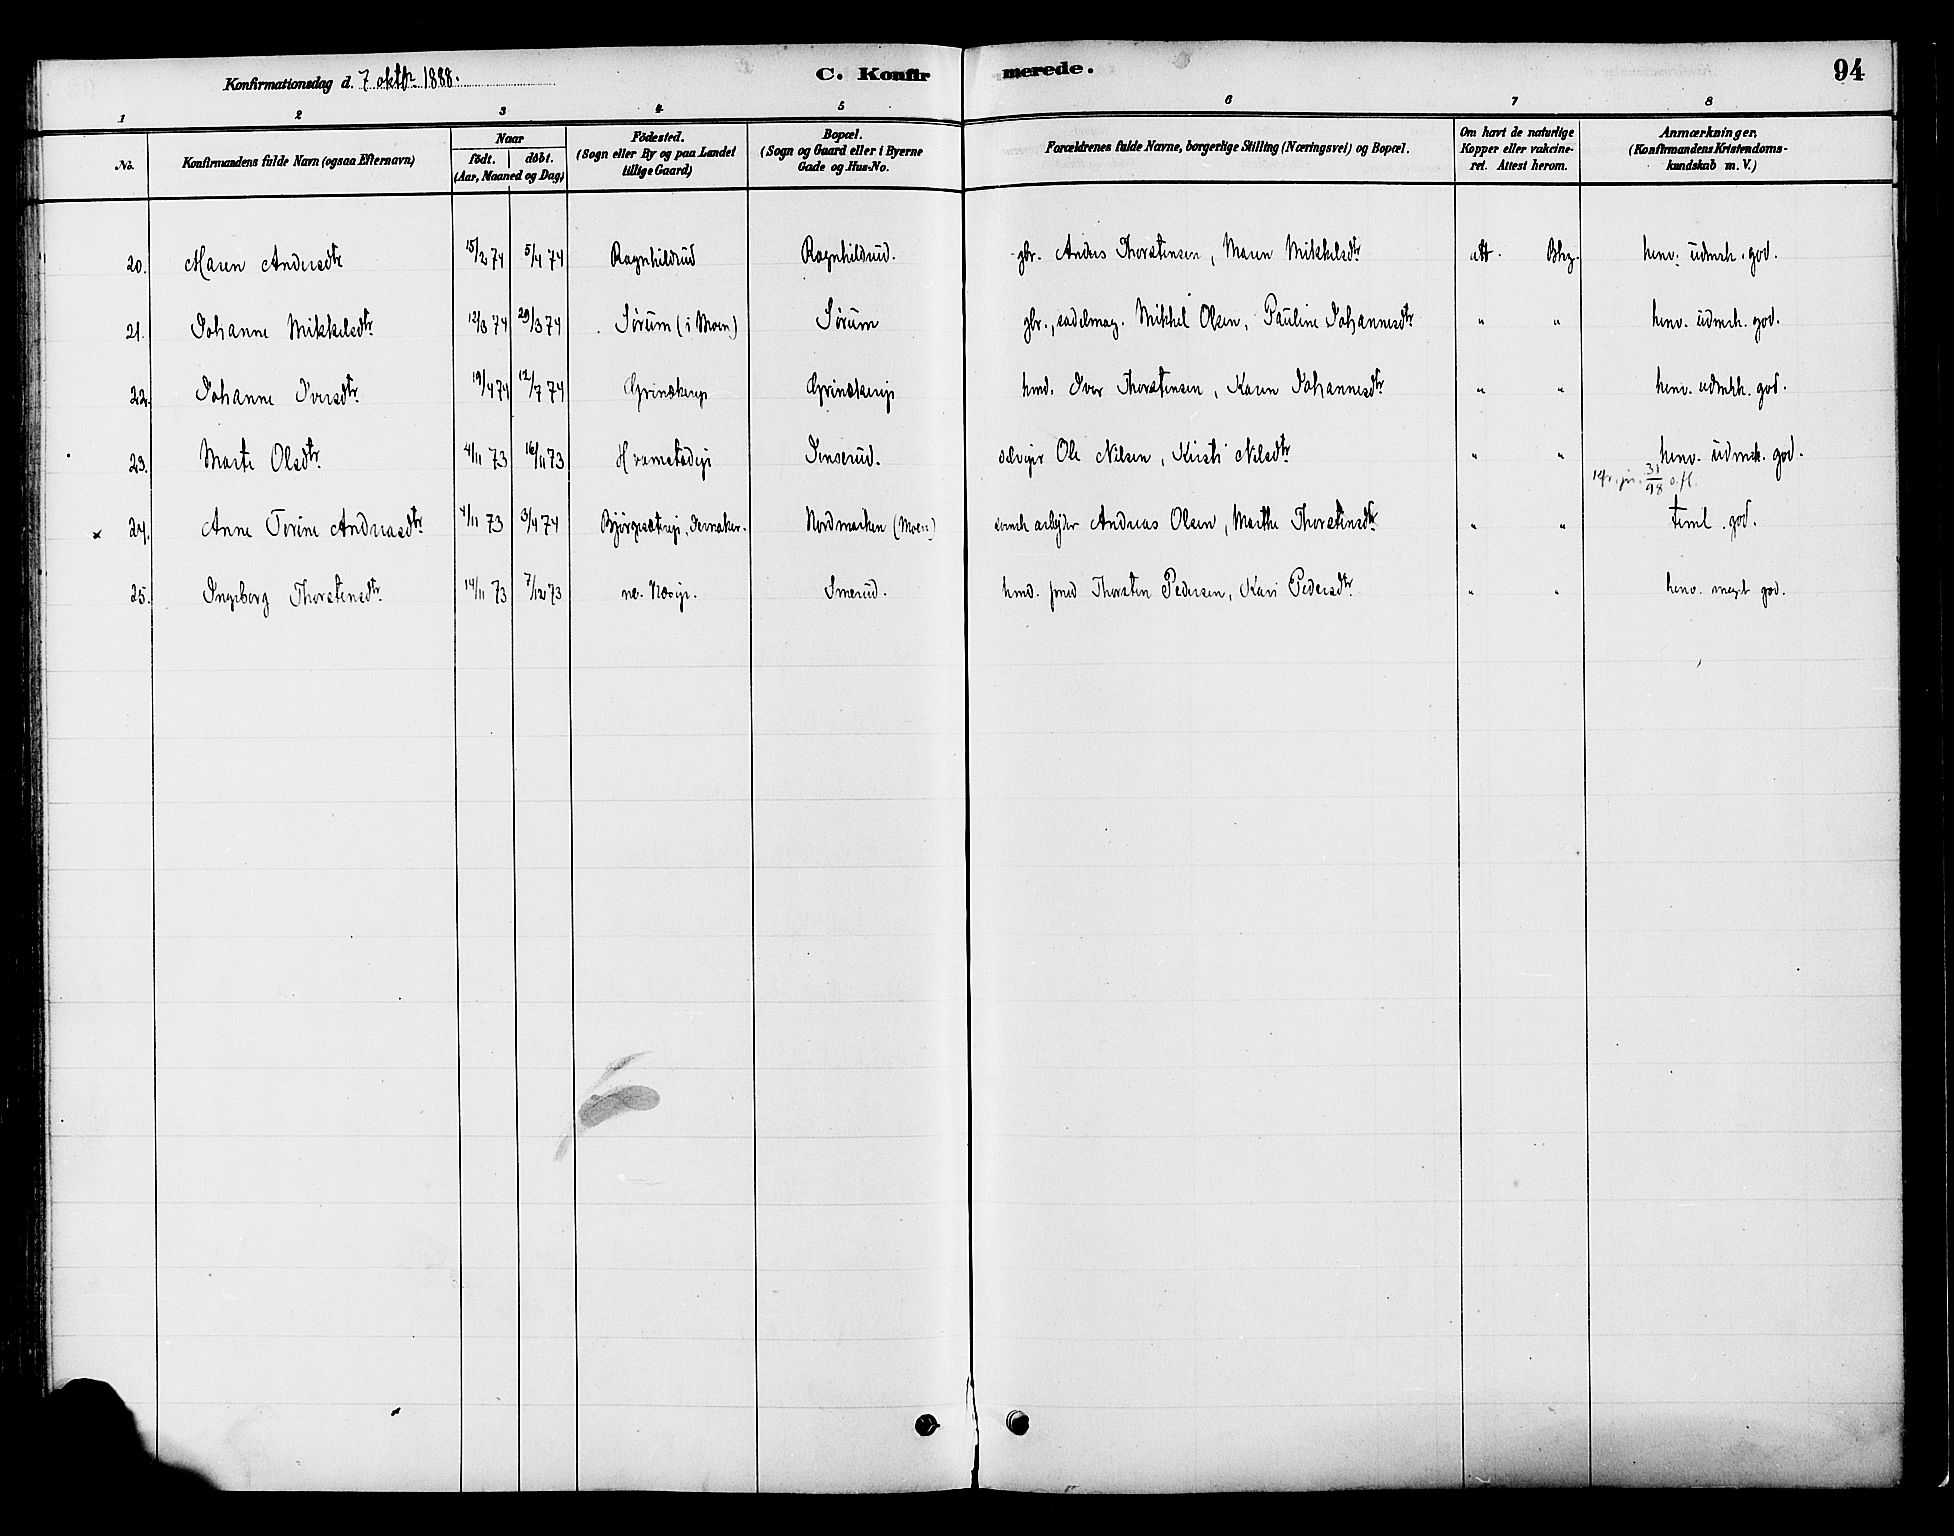 Konfirmationsdag d. 7 oktbr. 1888.
C. Konfirmerede.
94
1 2 3 4 5 6 7 8
No.
Konfirmandens fulde Navn (ogsaa Efternavn)
Naar
födt. döbt.
(Aar, Maaned og Dag)
Födested.
(Sogn eller By og paa Landet
tillige Gaard)
Bopæl.
(Sogn og Gaard eller i Byerne
Gade og Hus-No.
Forældrenes fulde Navne, borgerlige Stilling (Næringsvei) og Bopæl.
Om havt de naturlige
Kopper eller vakcine-
ret. Attest herom.
Anmærkninger,
(Konfirmandens Kristendoms-
kundskab m. V.)
20. Maren Andersdtr 15/2 74 5/4 74 Ragnhildrud Ragnhildrud. gbr. Anders Thorstensen, Maren Mikkelsdtr att. Bhg. henv. udmrk. god.
21. Johanne Mikkelsdtr 12/3 74 29/3 74 Sørum (i Moen) Sørum gbr., sadelmag. Mikkel Olsen, Pauline Johannesdtr " " henv. udmrk. god.
22. Johanne Iversdtr. 19/4 74 12/7 74 Grinakereje Grinakereje hmd. Iver Thorstensen, Karen Johannesdtr " " henv. udmrk. god.
23. Marte Olsdtr. 4/11 73 16/11 73 Hvamstadeje Jenserud. selvejer Ole Nilsen, Kirsti Nilsdtr " " henv. udmrk. god.
31/98 o.fl.
x 24. Anne Torine Andreasdtr 4/11 73 3/4 74 Bjørgesætreje, Jevnaker. Nordmarken (Moen) svensk arbejder Andreas Olsen, Marthe Thorstensdtr " " teml. god.
25. Ingeborg Thorstensdtr. 14/11 73 7/12 73 ne. Næseje. Smerud. hmd. smed Thorsten Pedersen, Kari Pedersdtr " " henv. meget god.